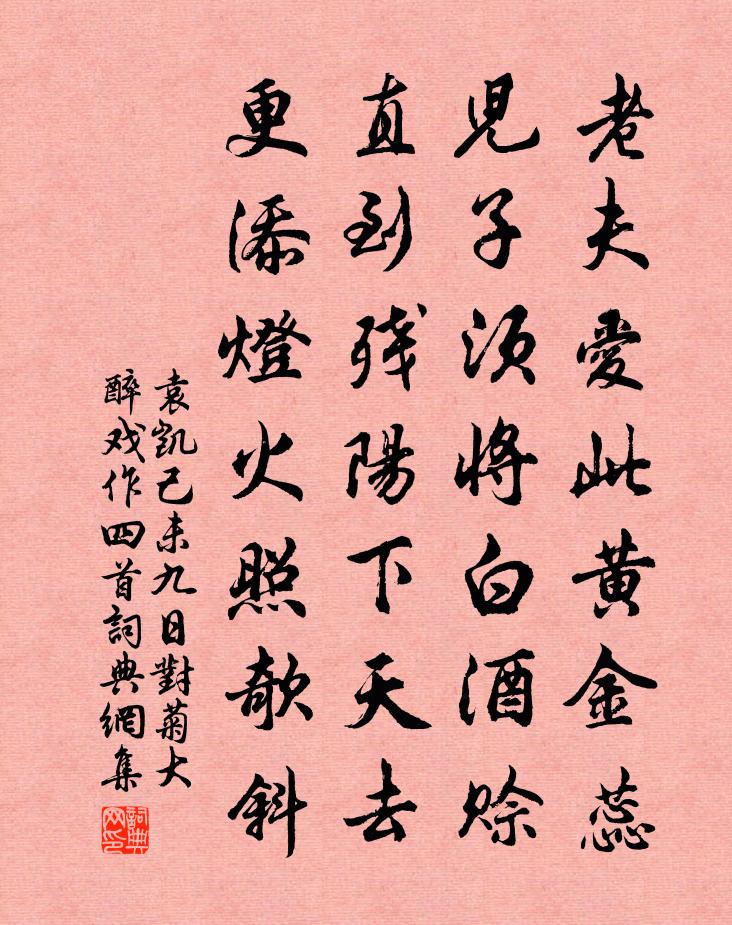 老夫愛此黄金蕊
児子須将白酒赊
直到残陽下天去
更添燈火照欹斜
袁凯己未九日對菊大
醉戏作四首詞典網集
詞典
网印